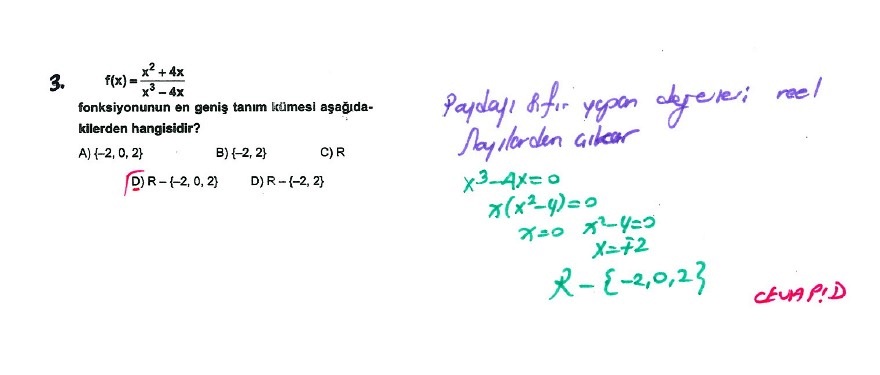 3. f(x) = x² + 4x / x³ – 4x
fonksiyonunun en geniş tanım kümesi aşağıda-
kilerden hangisidir?
A) {–2, 0, 2} B) {–2, 2} C) R
D) R – {–2, 0, 2} D) R – {–2, 2}
Paydayı sıfır yapan değerleri reel
Sayılardan çıkar
x³–4x=0
x(x²–4)=0
x=0 x²–4=0
x=∓2
R – {–2,0,2}
CEVAP: D